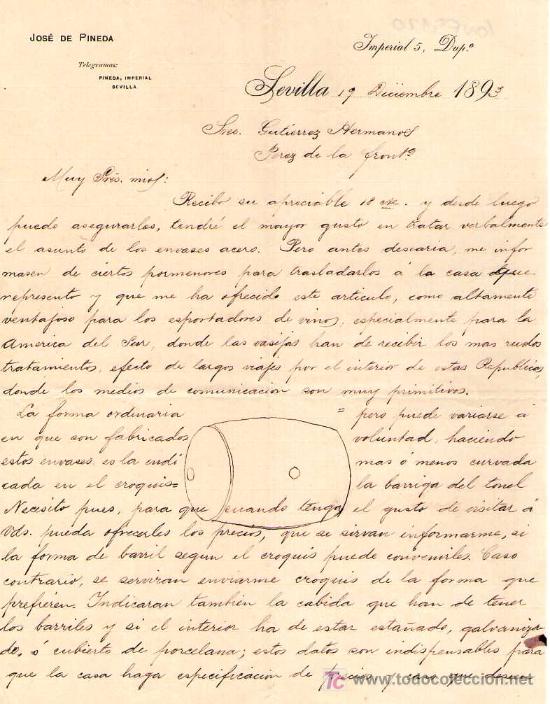 JOSÉ DE PINEDA
Imperial 5, Dup.º
Telegramas:
PINEDA, IMPERIAL
SEVILLA
Sevilla 19 Diciembre 1893
Sres. Gutierrez Hermanos
Jerez de la Front.ª
Muy Sres. mios:
Recibo su apreciable 18 cte. y desde luego
puedo asegurarles, tendré el mayor gusto en tratar verbalmente
el asunto de los envases acero. Pero antes desearia, me infor
masen de ciertos pormenores para trasladarlos á la casa que
represento y que me ha ofrecido este articulo, como altamente
ventajoso para los esportadores de vinos, especialmente para la
America del Sur, donde las vasijas han de recibir los mas rudos
tratamientos, efecto de largos viajes por el interior de estas Republicas,
donde los medios de comunicacion son muy primitivos.
La forma ordinaria
en que son fabricados
estos envases, es la indi
cada en el croquis=
= pero puede variarse á
voluntad, haciendo
mas ó menos curvada
la barriga del tonel
Necesito pues, para que cuando tenga el gusto de visitar á
Vds. pueda ofrecerles los precios, que se sirvan informarme, si
la forma de barril segun el croquis puede convenirles. Caso
contrario, se serviran enviarme croquis de la forma que
prefieren. Indicaran tambien la cabida que han de tener
los barriles y si el interior ha de estar estañado, galvaniza
do, o cubierto de porcelana; estos datos son indispensables para
que la casa haga especificacion de precios y caso que deseen
TC www.todocoleccion.net